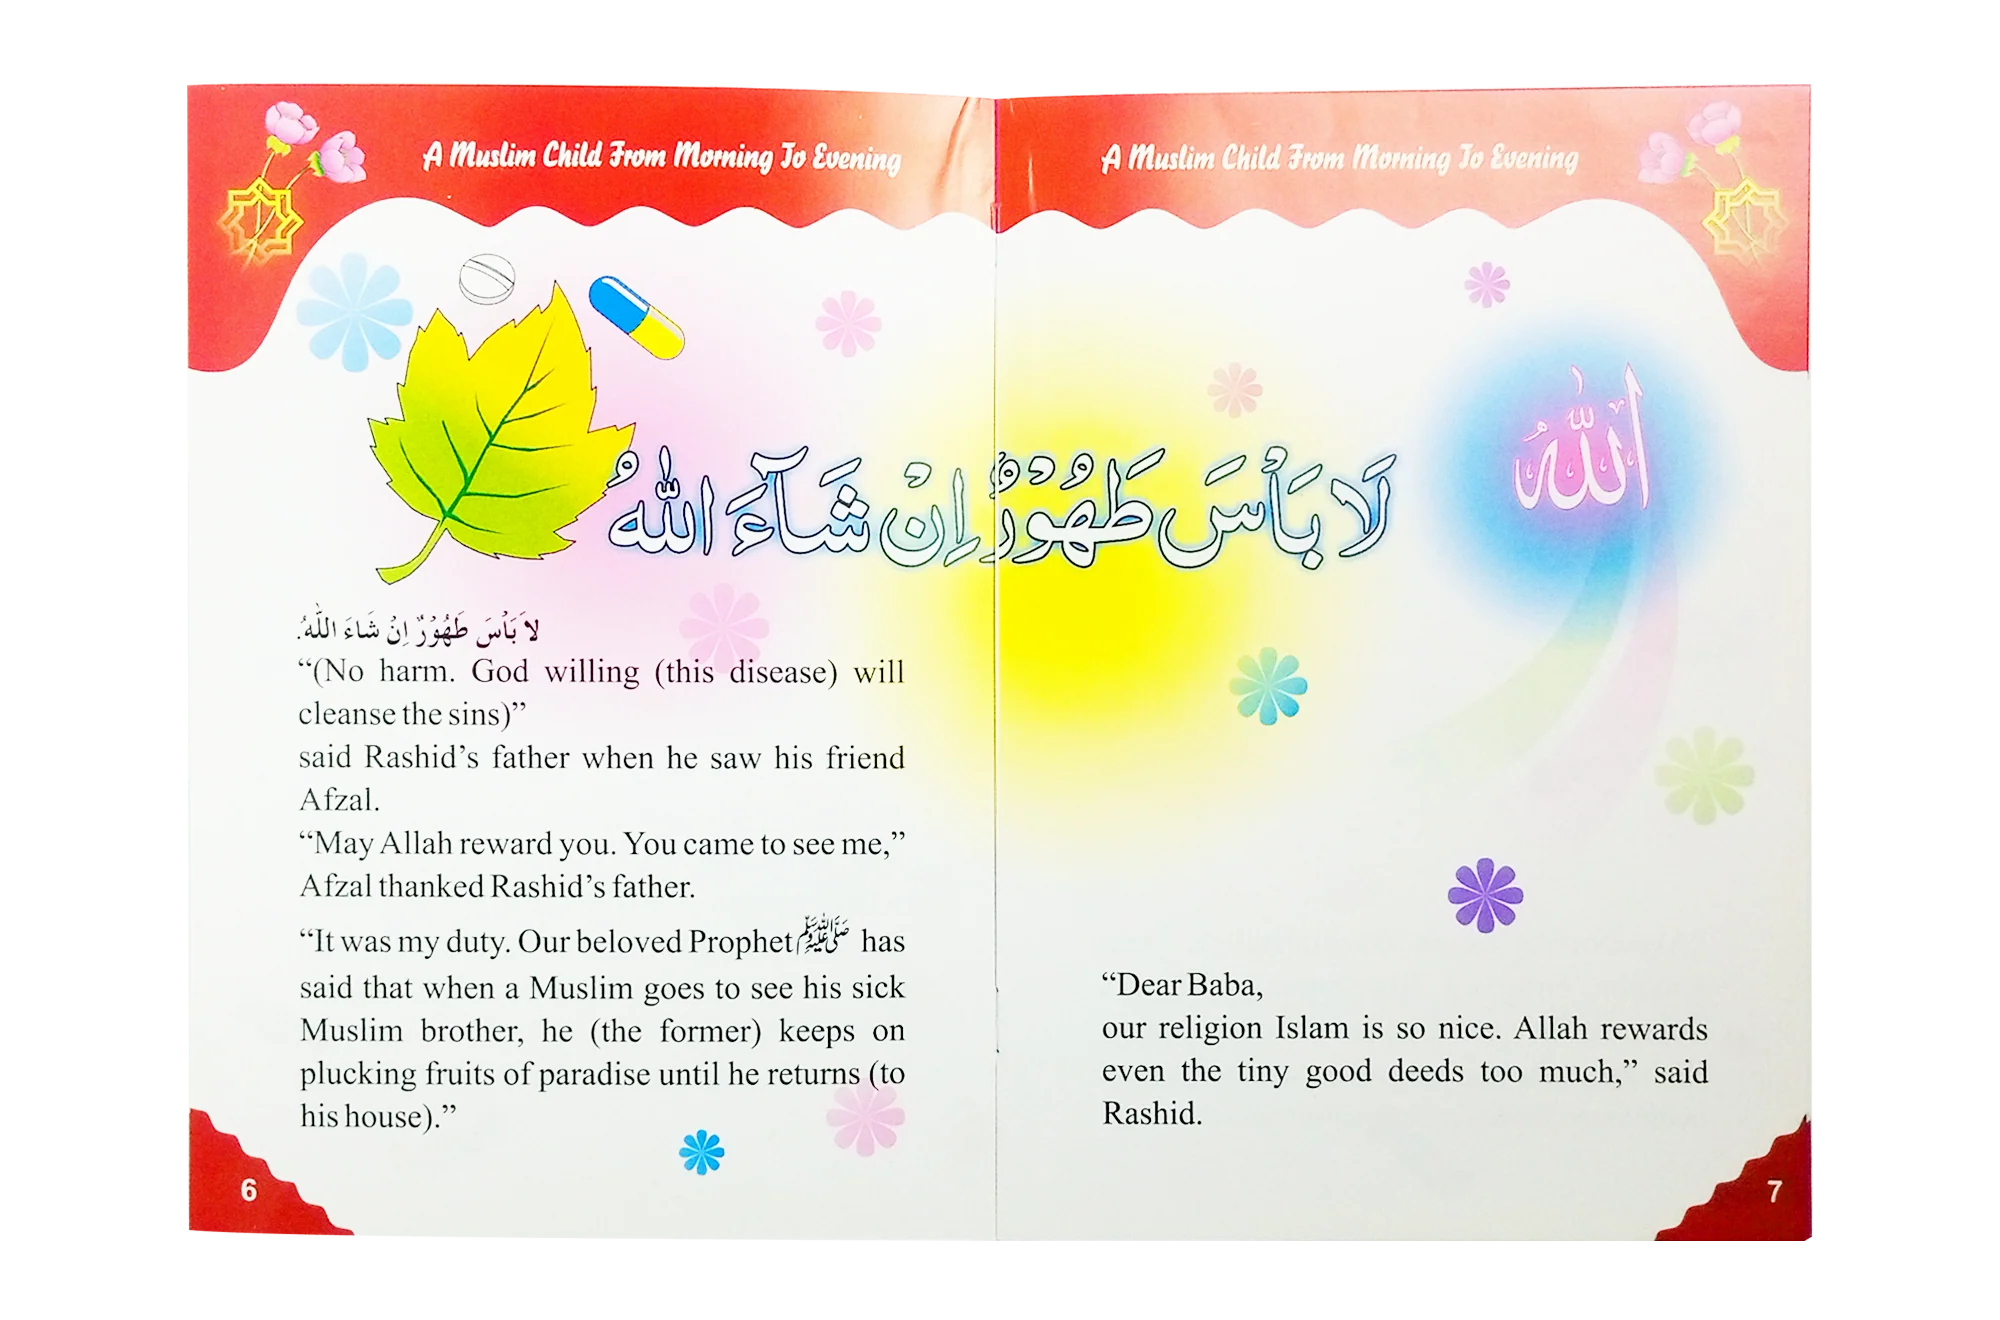 A Muslim Child From Morning To Evening
لَا بَأْسَ طَهُوْرٌ اِنْ شَآءَ اللّٰهُ
لاَ بَأْسَ طَهُوْرٌ اِنْ شَاءَ اللّٰهُ.
“(No harm. God willing (this disease) will
cleanse the sins)”
said Rashid’s father when he saw his friend
Afzal.
“May Allah reward you. You came to see me,”
Afzal thanked Rashid’s father.
“It was my duty. Our beloved Prophet ﷺ has
said that when a Muslim goes to see his sick
Muslim brother, he (the former) keeps on
plucking fruits of paradise until he returns (to
his house).”
6
A Muslim Child From Morning To Evening
اللّٰهُ
“Dear Baba,
our religion Islam is so nice. Allah rewards
even the tiny good deeds too much,” said
Rashid.
7